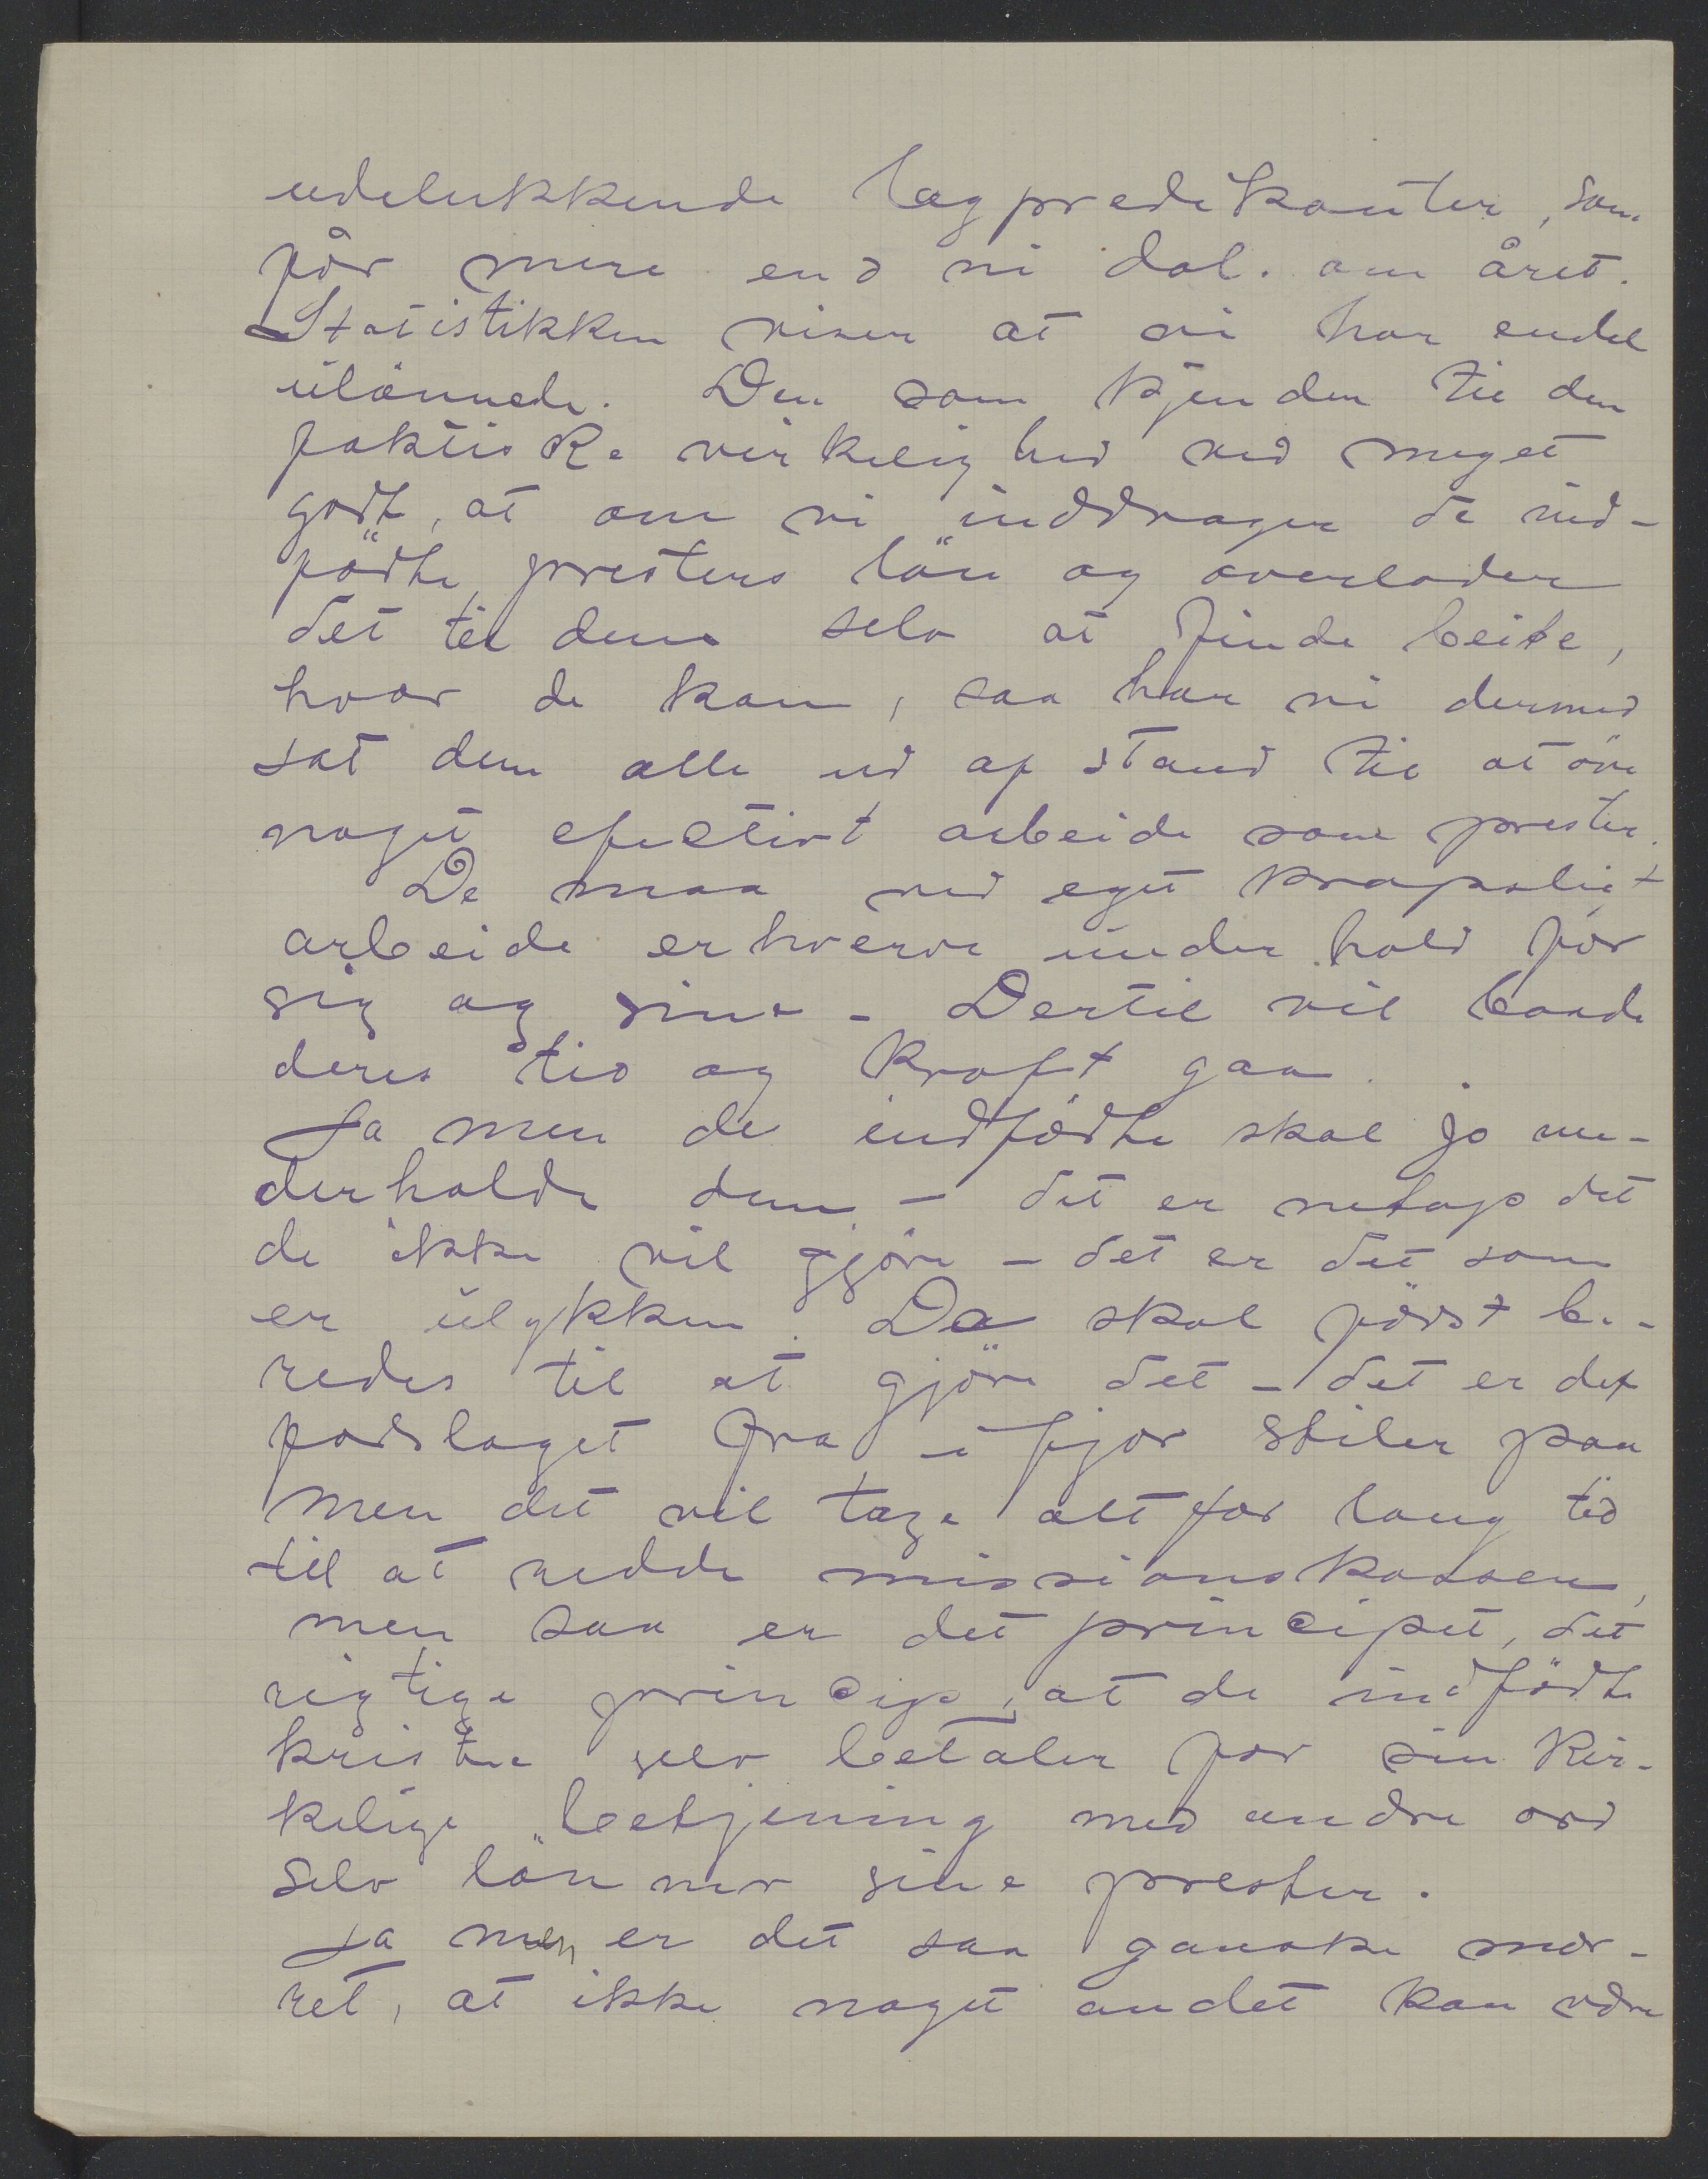 udelukkende lægpredikanter, som
får mere end ni dol. om året.
Statistikken viser at vi har endel
ulönnede. Den som kjender til den
faktiske virkelighed ved meget
godt, at om vi inddrager de ind-
födte presters lön og overlader
det til dem selv at finde beite,
hvor de kan, saa har vi dermed
sat dem alle ud af stand til at öve
noget efektivt arbeide som prester.
De maa ved eget kropsligt
arbeide erhverve underhold for
sig og sine - Dertil vil baade
deres tid og kraft gaa.
Ja men de indfödte skal jo un-
derholde dem - det er netop det
de ikke vil gjöre - det er det som
er ulykken. De skal först be-
redes til at gjöre det - det er det
forslaget fra i fjor stiler paa
men det vil tage alt for lang tid
til at redde missionskassen,
men saa er det principet, det
rigtige princip, at de indfödte
kristne selv betaler for sin kir-
kelige betjening med andre ord
selv lönner sine prester.
Ja men er det saa ganske mær-
ret, at ikke noget andet kan være